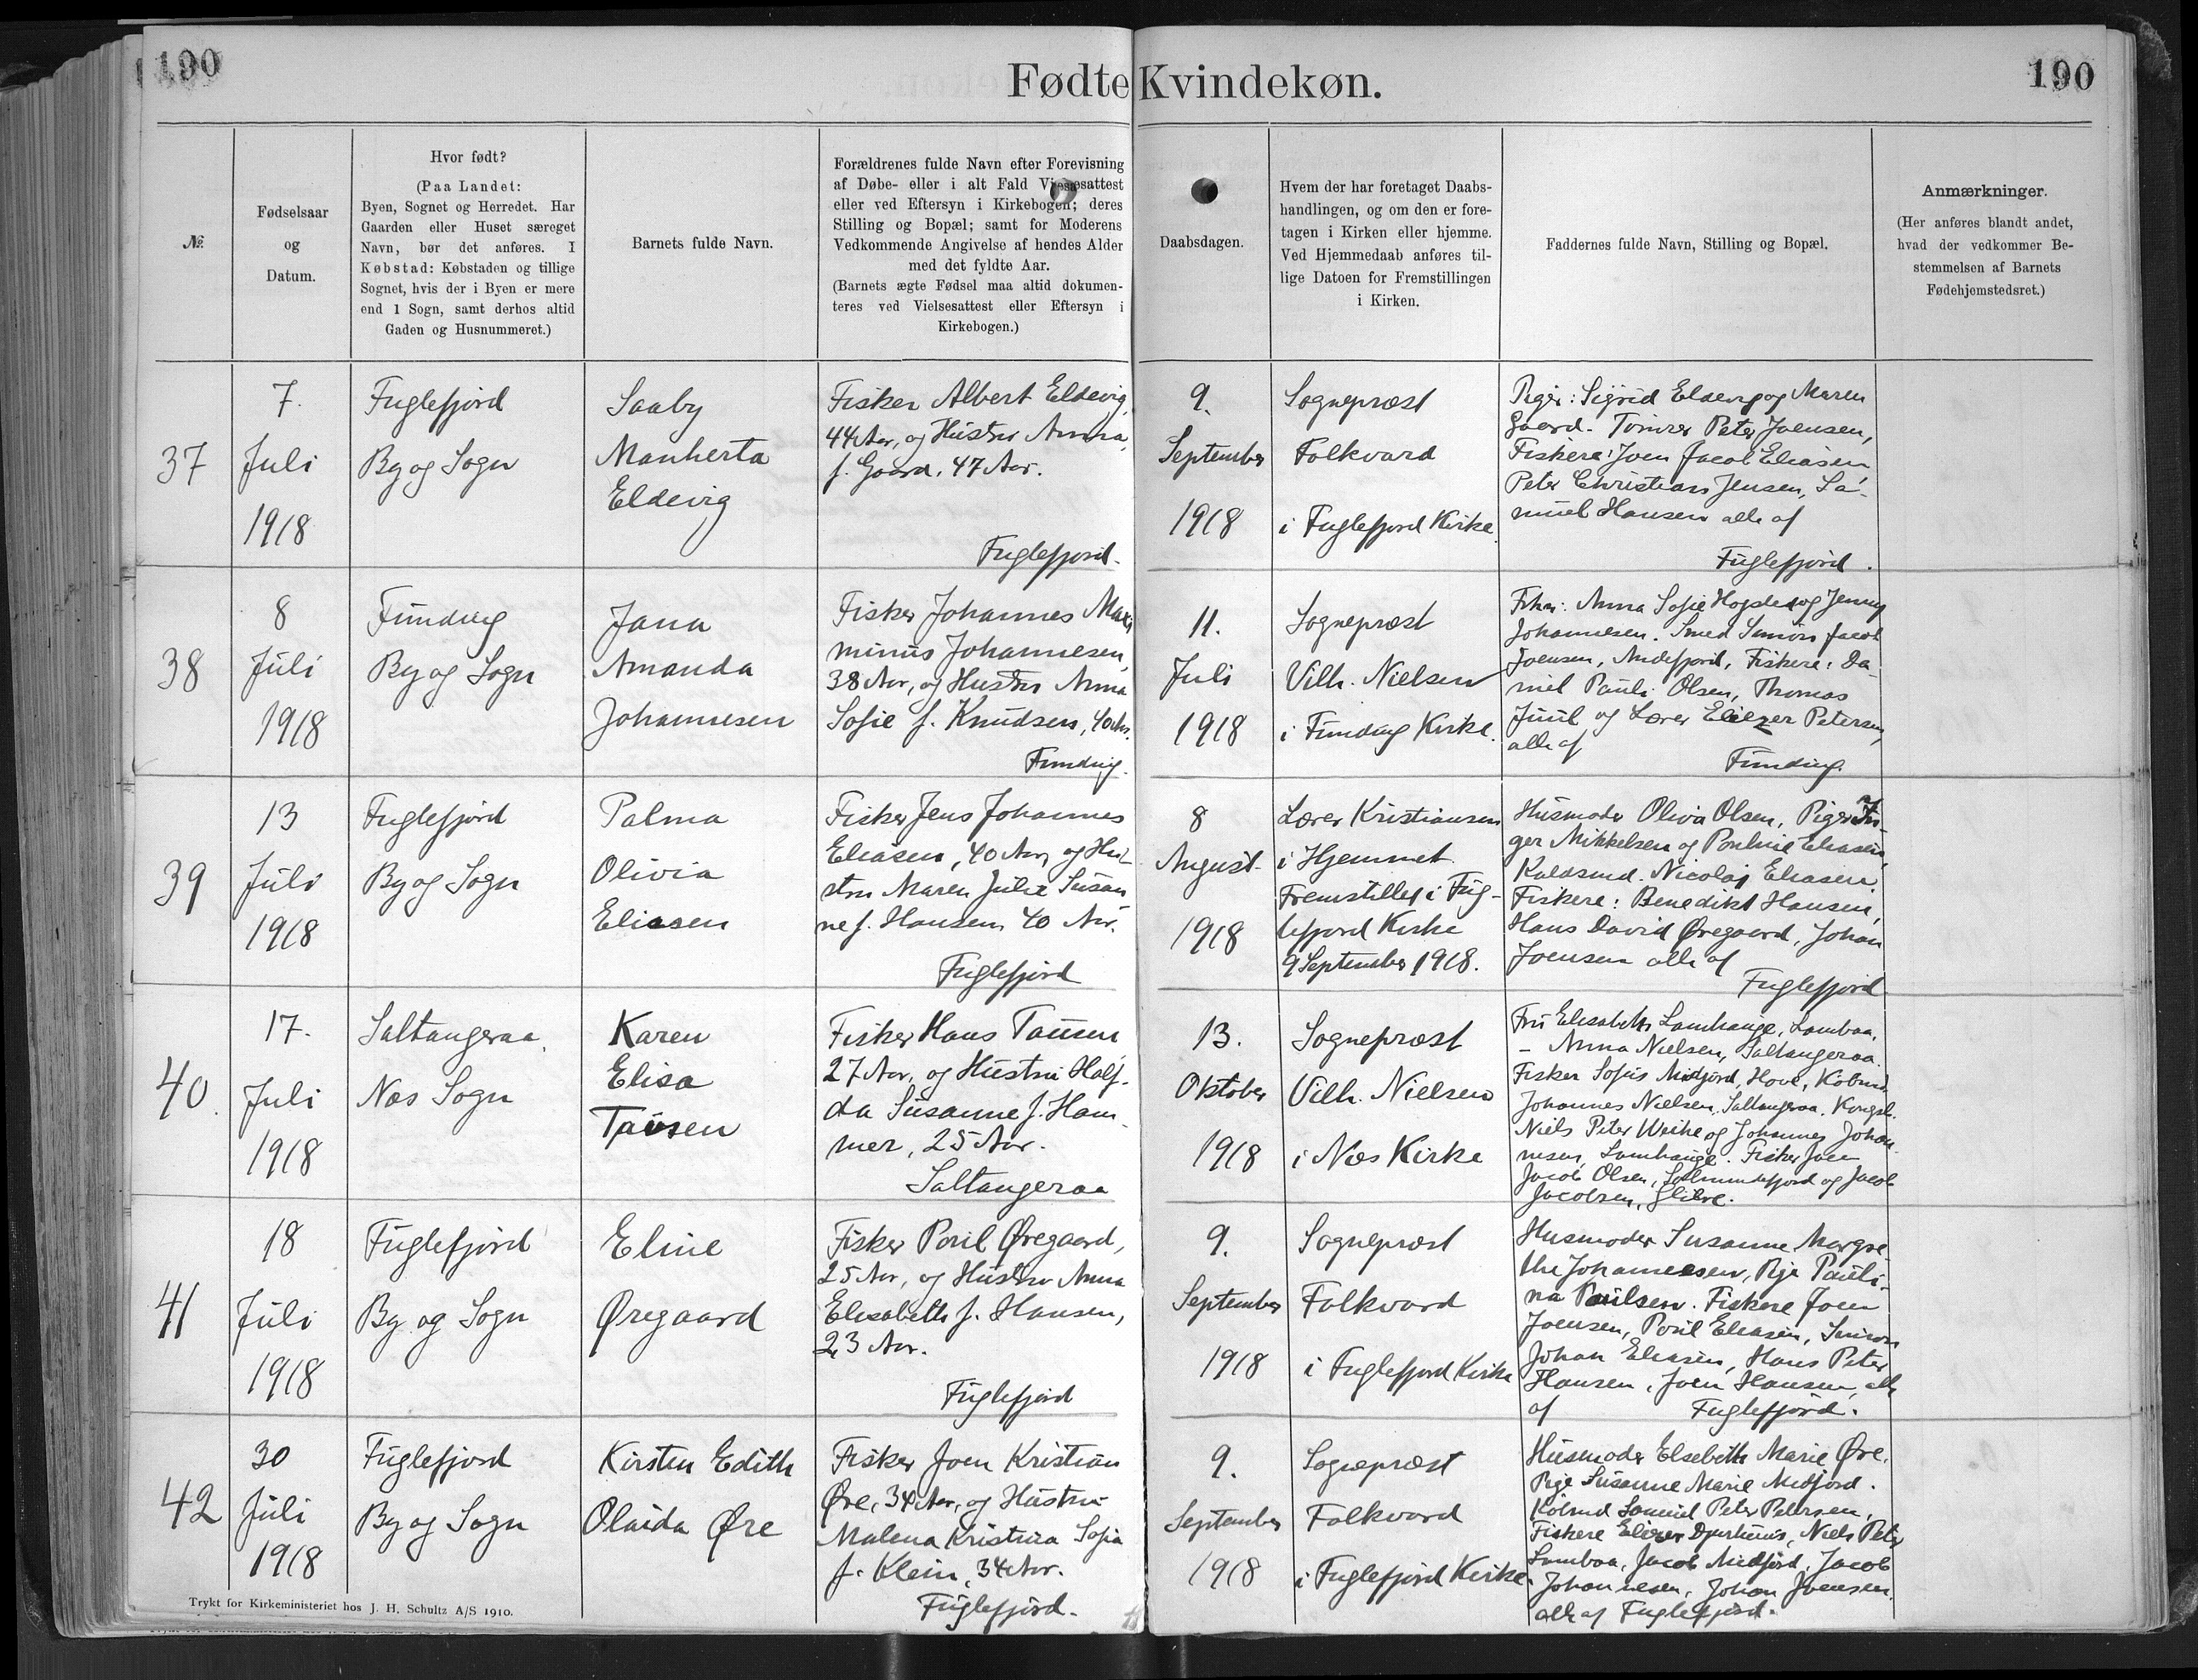 190
Fødte Kvindekøn.
190
№
Fødselsaar
og
Datum.
Hvor født?
(Paa Landet:
Byen, Sognet og Herredet. Har
Gaarden eller Huset særeget
Navn, bør det anføres. I
Købstad: Købstaden og tillige
Sognet, hvis der i Byen er mere
end 1 Sogn, samt derhos altid
Gaden og Husnummeret.)
Barnets fulde Navn.
Forældrenes fulde Navn efter Forevisning
af Døbe- eller i alt Fald Vielsesattest
eller ved Eftersyn i Kirkebogen; deres
Stilling og Bopæl; samt for Moderens
Vedkommende Angivelse af hendes Alder
med det fyldte Aar.
(Barnets ægte Fødsel maa altid dokumen-
teres ved Vielsesattest eller Eftersyn i
Kirkebogen.)
Daabsdagen.
Hvem der har foretaget Daabs-
handlingen, og om den er fore-
tagen i Kirken eller hjemme.
Ved Hjemmedaab anføres til-
lige Datoen for Fremstillingen
i Kirken.
Faddernes fulde Navn, Stilling og Bopæl.
Anmærkninger.
(Her anføres blandt andet,
hvad der vedkommer Be-
stemmelsen af Barnets
Fødehjemstedsret.)
37
7.
Juli
1918
Fuglefjord
By og Sogn
Saaby
Manherta
Eldevig
Fisker Albert Eldevig,
44 Aar, og Hustru Anna
f. Gaard, 47 Aar.
Fuglefjord.
9.
September
1918
Sognepræst
Folkvard
i Fuglefjord Kirke.
Piger: Sigrid Eldevig og Maren
Gaard. Tømrer Peter Joensen,
Fiskere: Joen Jacob Eliasen,
Peter Christian Jensen, Sa-
muel Hansen alle af
Fuglefjord.
38
8
Juli
1918
Funding
By og Sogn
Jana
Amanda
Johannesen
Fisker Johannes Maxi
minus Johannesen,
38 Aar, og Hustru Anna
Sofie f. Knudsen, 40 Aar.
Funding.
11.
Juli
1918
Sognepræst
Vilh. Nielsen
i Funding Kirke.
Anna Sofie og Jenny
Johannesen. Smed Simon Jacob
Joensen, Andefjord, Fiskere: Da-
niel Pauli Olsen, Thomas
Juul og Lærer Eliezer Petersen,
alle af
Funding.
39
13
Juli
1918
Fuglefjord
By og Sogn
Palma
Olivia
Eliasen
Fisker Jens Johannes
Eliasen, 40 Aar, og Hu-
stru Maren Julie Susan
ne f. Hansen 40 Aar.
Fuglefjord
8
August
1918
Lærer Kristiansen
i Hjemmet.
Fremstillet i Fug-
lefjord Kirke
9 September 1918.
Husmoder Olivia Olsen, Piger In-
ger Mikkelsen og Pouline Eliasen,
Nicolaj Eliasen.
Fiskere: Benedikt Hansen,
Hans David Øregaard, Johan
Joensen alle af
Fuglefjord
40.
17.
Juli
1918
Saltangeraa,
Næs Sogn
Karen
Elisa
Tausen
Fisker Hans Tausen
27 Aar, og Hustru Half-
da Susanne f. Ham-
mer, 25 Aar.
Saltangeraa
13.
Oktober
1918
Sognepræst
Vilh. Nielsen
i Næs Kirke
Fru Elisabeth Lamhauge, Lambaa.
- Anna Nielsen, Saltangeraa.
Fisker Sofus Midjord, Hove, Købmd.
Johannes Nielsen, Saltangeraa. Kongsb.
Niels Peter Weihe og Johannes Johan
nesen, Lamhauge. Fisker Joen
Jacob Olsen, Solmundefjord og Jacob
Jacobsen, Glibre.
41
18
Juli
1918
Fuglefjord
By og Sogn
Eline
Øregaard
Fisker Poul Øregaard,
25 Aar, og Hustru Anna
Elisabeth f. Hansen,
23 Aar.
Fuglefjord
9.
September
1918
Sognepræst
Folkvard
i Fuglefjord Kirke
Husmoder Susanne Margre
the Johannesen, Pige Pauli-
na Paulsen. Fiskere Joen
Joensen, Poul Eliasen, Simon
Johan Eliasen, Hans Peter
Hansen, Joen Hansen, alle
af Fuglefjord.
42
30
Juli
1918
Fuglefjord
By og Sogn
Kirsten Edith
Olaida Øre
Fisker Joen Kristian
Øre, 34 Aar, og Hustru
Malena Kristina Sofia
f. Klein, 34 Aar.
Fuglefjord.
9.
September
1918
Sognepræst
Folkvard
i Fuglefjord Kirke.
Husmoder Elsebeth Marie Øre.
Pige Susanne Marie Midjord.
Købmd Samuel Peter Petersen,
Fiskere Eliezer Djurhuus, Niels Peter
Lambaa, Jacob Midjord, Jacob
Johannesen, Johan Joensen.
alle af Fuglefjord.
Trykt for Kirkeministeriet hos J. H. Schultz A/S 1910.